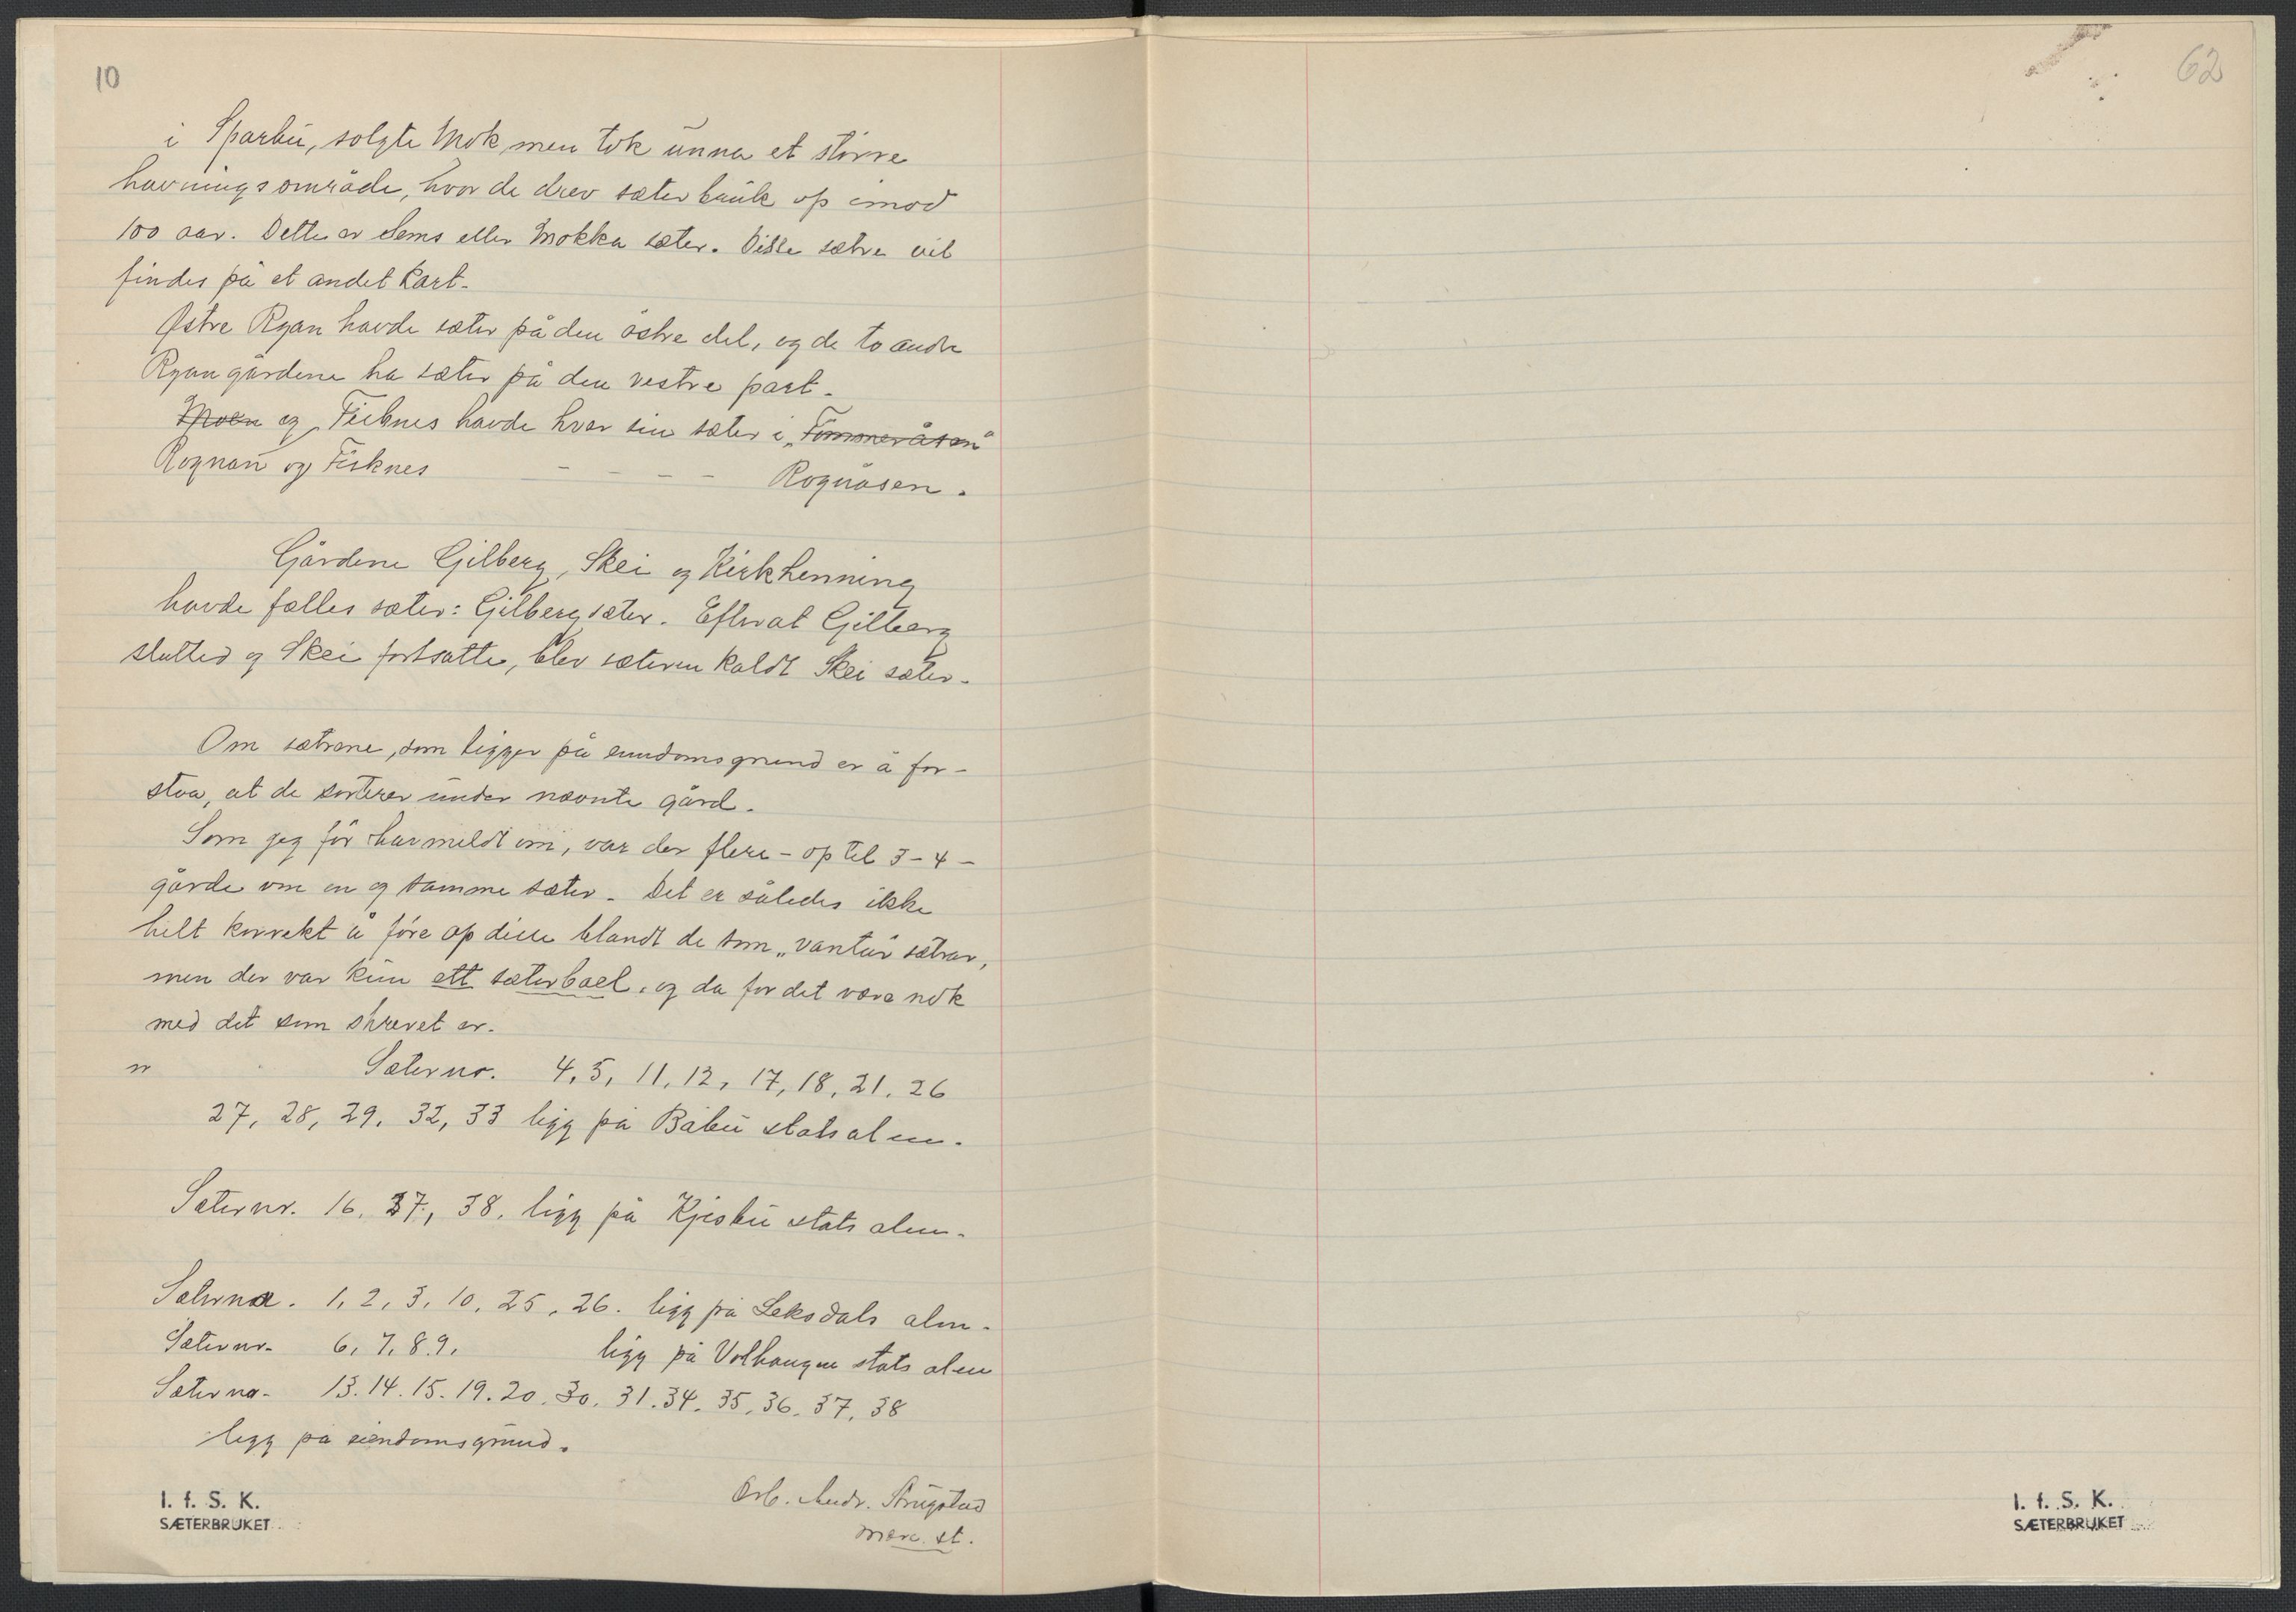 10
i Sparbu, solgte Mok, men tok unna et större
havningsområde, hvor de drev sæterbruk op imod
100 aar. Dette er Sems eller Mokka sæter. Disse sætre vil
findes på et andet kart.
Østre Ryan havde sæter på den östre del, og de to andre
Ryangårdene ha sæter på den vestre part.
Moen og Fisknes havde hver sin sæter i „Tömmeråsen"
Rognan og Fisknes - - - - Rognåsen.
Gårdene Gilberg, Skei og Kirkhenning
havde fælles sæter: Gilbergsæter. Efterat Gilberg
slutted og Skei fortsatte, blev sæteren kaldt Skei sæter.
Om sætrene, som ligger på eiendomsgrund er å for-
staa, at de sorterer under nævnte gård.
Som jeg för har meldt om, var der flere - op til 3-4-
gårde om en og samme sæter. Det er således ikke
helt korrekt å före op disse blandt de som „vantar" sætrar,
men der var kun ett sæterbael, og da for det være nok
med det som skrevet er.
Sæternr. 4, 5, 11, 12, 17, 18, 21, 26
27, 28, 29, 32, 33 ligg på Båbu statsalm.
Sæternr. 16, 37, 38. ligg på Kjesbu stats alm.
Sæternr. 1, 2, 3, 10, 25, 26. ligg på Leksdals alm.
Sæternr. 6, 7, 8. 9. ligg på Volhaugen stats alm
Sæternr. 13. 14. 15. 19. 20. 30. 31. 34. 35. 36. 37. 38
ligg på eiendomsgrund.
Arb. Andr. Strugstad
Mære st.
I. f. S. K.
SÆTERBRUKET
62
I. f. S. K.
SÆTERBRUKET